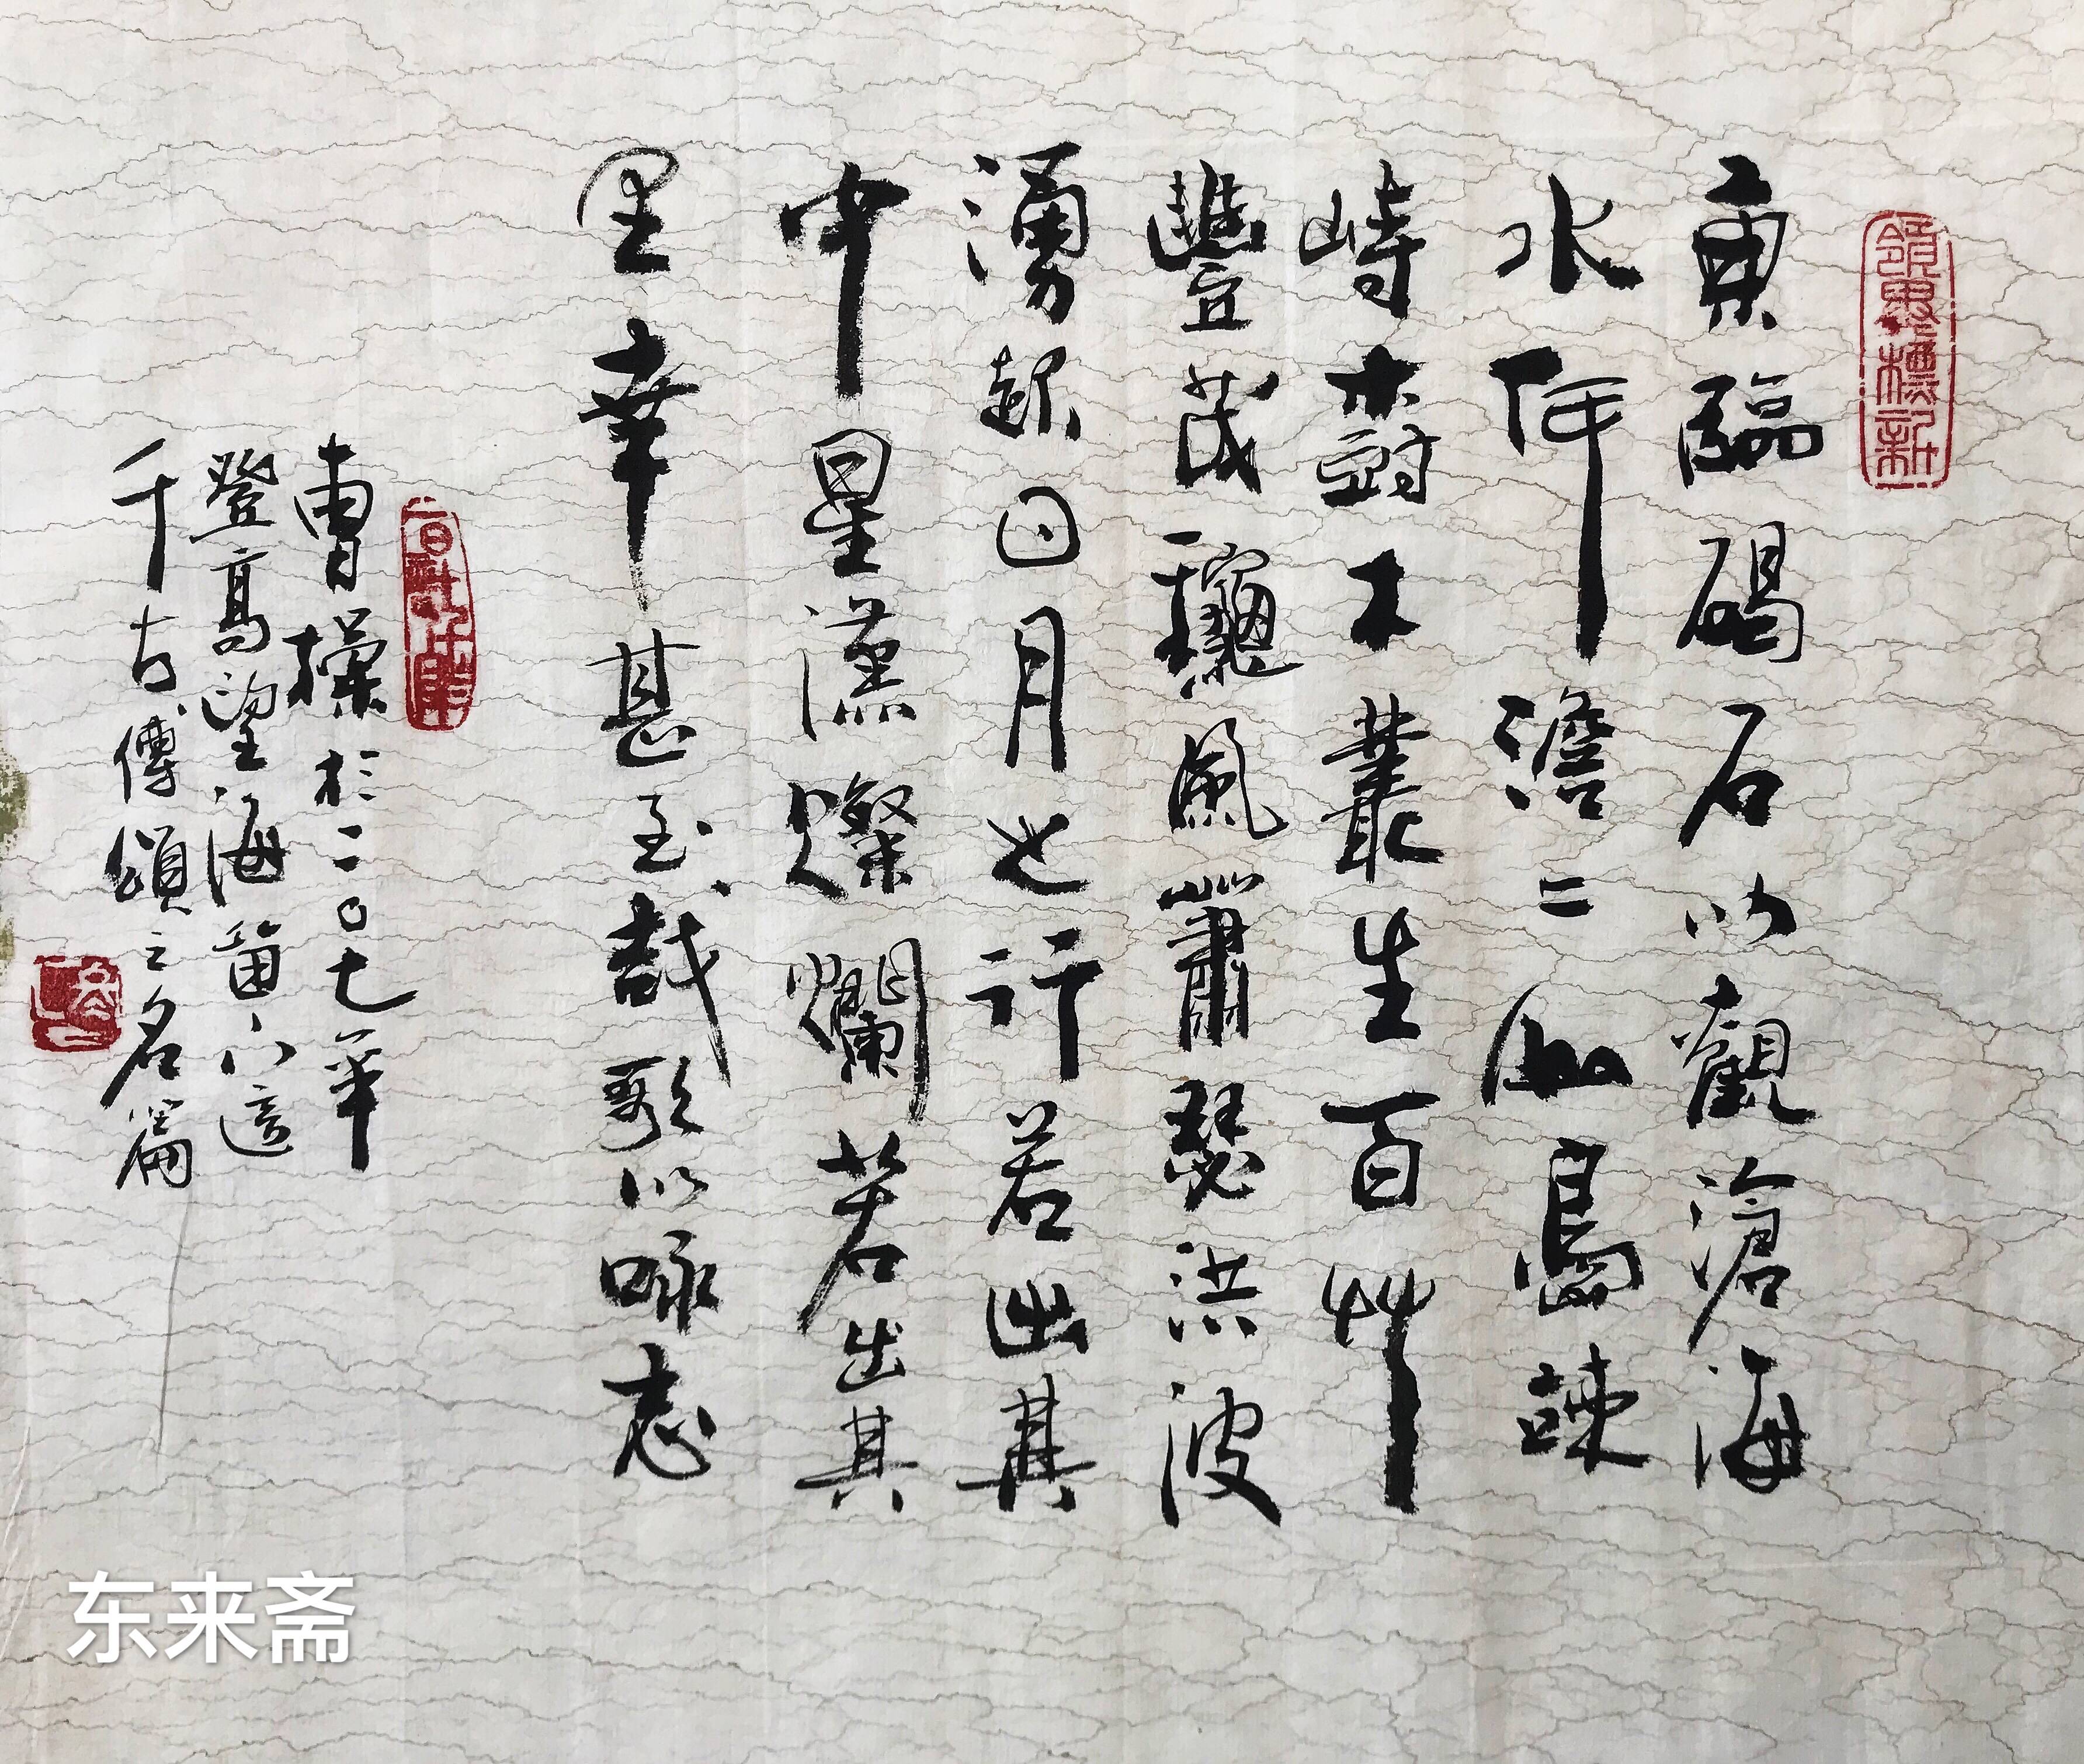 領異標新
東臨碣石以觀滄海
水何澹二山島竦
峙樹木叢生百草
豐茂龝風蕭瑟洪波
湧起日月之行若出其
中星漢燦爛若出其
里幸甚至哉歌以咏志
曹操於二〇七年
登高望海留下這
千古傳頌之名篇
东来斋